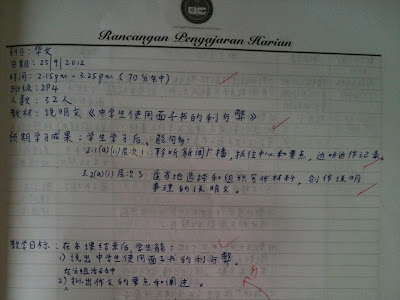 Rancangan Pengajaran Harian
科目：华文
日期：25/9/2012
时间：2.15pm – 3.25pm (70分钟)
班级：2P4
人数：32人
教材：说明文《中学生使用面子书的利与弊》
预期学习成果：学生学习后，能够：
2.1(a)(i)层次1 聆听新闻广播，抓住中心和要点，边听边作记录。
3.2(a)(i)层次3 适当地选择和组织写作材料，创作说明
事理的说明文。
教学目标：在本课结束后，学生能：
1) 说出中学生使用面子书的利与弊。
在分组活动中
2) 拟出作文的要点和阐述。